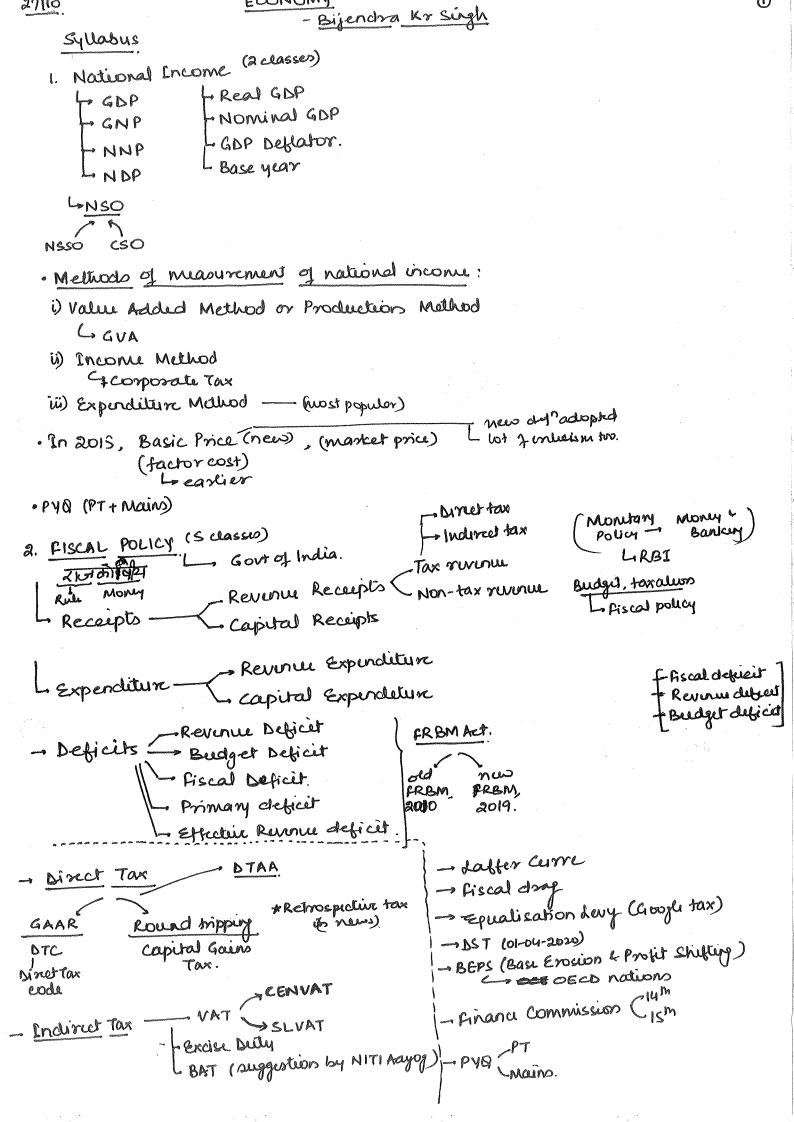 27/10
ECONOMY
- Bijendra Kr Singh
①
Syllabus
1. National Income (2 classes)
GDP
GNP
NNP
NDP
Real GDP
Nominal GDP
GDP Deflator.
Base year
NSO
NSSO CSO
• Methods of measurement of national income :
i) Value Added Method or Production Method
GVA
ii) Income Method
Corporate Tax
iii) Expenditure Method — (most popular)
• In 2015, Basic Price (new), (market price)
new defn adopted
lot of criticism too.
(factor cost)
earlier
• PYQ (PT + Mains)
2. FISCAL POLICY (5 classes)
Govt of India.
Rule Money
Receipts
Revenue Receipts
Capital Receipts
Tax revenue
Non-tax revenue
Direct tax
Indirect tax
(Monetary Policy → Money & Banking)
RBI
Budget, taxation
fiscal policy
Expenditure
Revenue Expenditure
Capital Expenditure
Fiscal deficit
Revenue deficit
Budget deficit
→ Deficits
Revenue Deficit
Budget Deficit
Fiscal Deficit.
Primary deficit
Effective Revenue deficit.
FRBM Act.
old FRBM
new FRBM, 2019.
→ Direct Tax
DTAA
GAAR
DTC
Direct Tax code
Round tripping
Capital Gains Tax.
*Retrospective tax
news)
→ Indirect Tax — VAT
CENVAT
SLVAT
Excise Duty
BAT (suggestion by NITI Aayog)
→ Laffer Curve
→ Fiscal drag
→ Equalisation Levy (Google tax)
→ DST (01-04-2020)
→ BEPS (Base Erosion & Profit Shifting)
OECD nations
→ Finance Commission
14th
15th
→ PYQ
PT
Mains.